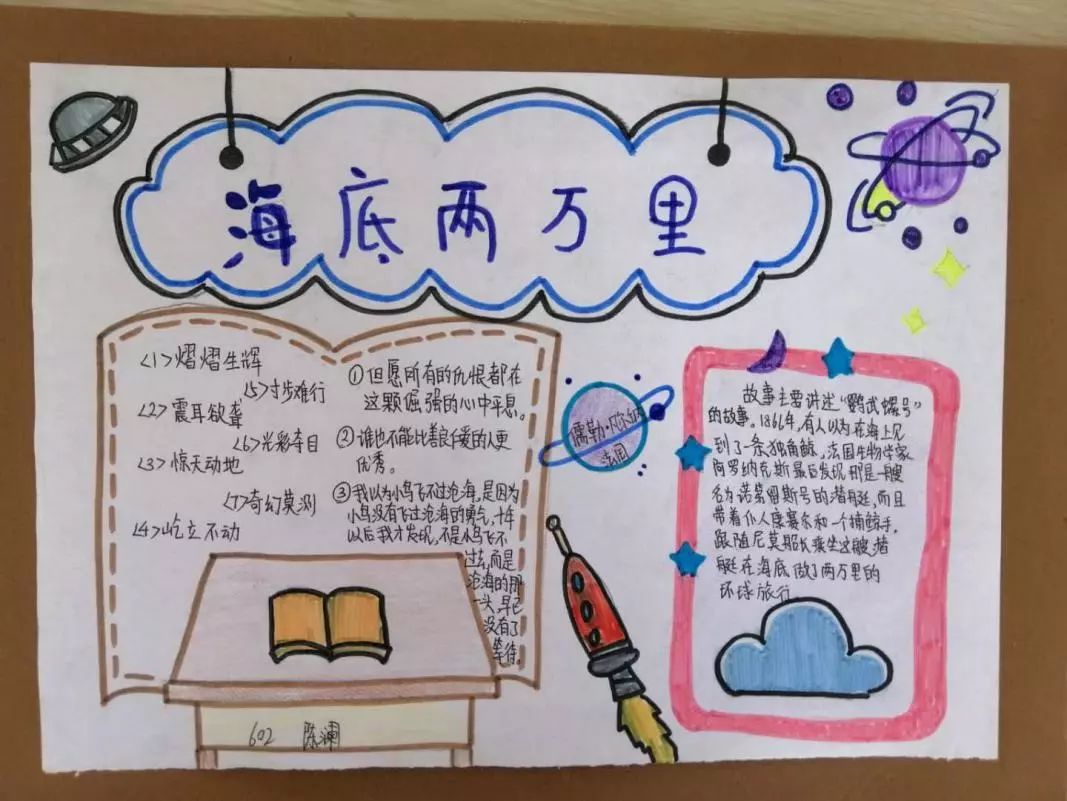 海底两万里
<1>熠熠生辉
<5>寸步难行
<2>震耳欲聋
<6>光彩夺目
<3>惊天动地
<7>奇幻莫测
<4>屹立不动
①但愿所有的仇恨都在
这颗倔强的心中平息。
②谁也不能比善良仁爱的人更
优秀。
③我以为小鸟飞不过沧海,是因为
小鸟没有飞过沧海的勇气,十年
以后我才发现,不是小鸟飞不
过去,而是
沧海的那
一头,早已
没有了
等待。
儒勒·凡尔纳
法国
故事主要讲述“鹦鹉螺号”
的故事。1866年,有人以为在海上见
到了一条独角鲸,法国生物学家
阿罗纳克斯最后发现那是一艘
名为诺第留斯号的潜艇,而且
带着仆人康塞尔和一个捕鲸手,
跟随尼莫船长乘坐这艘潜
艇在海底做了两万里的
环球旅行
602 陈澜